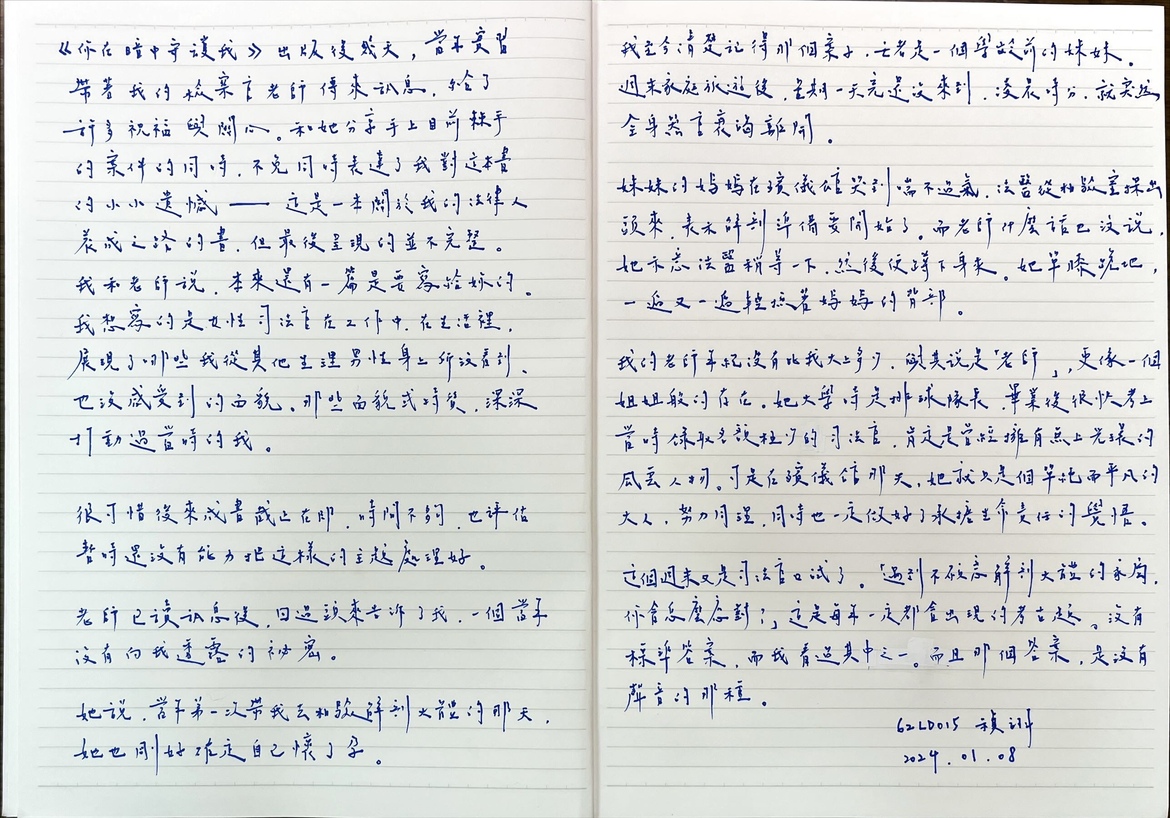 《你在暗中守護我》出版後幾天，當年實習
帶著我的檢察官老師傳來訊息，給了
許多祝福與關心。和她分享手上目前棘手
的案件的同時，不免同時表達了我對這本書
的小小遺憾——這是一本關於我的法律人
養成之路的書，但最後呈現的並不完整。
我和老師說，本來還有一篇是要寫給妳的。
我想寫的是女性司法官在工作中，在生活裡，
展現了哪些我從其他生理男性身上所沒看到、
也沒感受到的面貌。那些面貌或特質，深深
打動過當時的我。
很可惜後來成書截止在即，時間不夠，也評估
暫時還沒有能力把這樣的主題處理好。
老師已讀訊息後，回過頭來告訴了我，一個當年
沒有向我透露的祕密。
她說，當年第一次帶我去相驗解剖大體的那天，
她也剛好確定自己懷了孕。
我至今清楚記得那個案子，亡者是一個學齡前的妹妹。
週末家庭旅遊後，星期一天亮還沒來到，凌晨時分，就突然
全身器官衰竭離開。
妹妹的媽媽在殯儀館哭到喘不過氣，法醫從相驗室探出
頭來，表示解剖準備要開始了。而老師什麼話也沒說，
她示意法醫稍等一下，然後便蹲下身來。她單膝跪地，
一遍又一遍輕撫著媽媽的背部。
我的老師年紀沒有比我大上多少，與其說是「老師」，更像一個
姐姐般的存在。她大學時是排球隊長，畢業後很快考上
當時錄取名額極少的司法官，肯定是曾經擁有無上光環的
風雲人物。可是在殯儀館那天，她就只是個單純而平凡的
大人，努力同理，同時也一定做好了承擔生命責任的覺悟。
這個週末又是司法官口試了。「遇到不願意解剖大體的家屬，
你會怎麼應對？」這是每年一定都會出現的考古題。沒有
標準答案，而我看過其中之一。而且那個答案，是沒有
聲音的那種。
62LD015 禎翊
2024.01.08